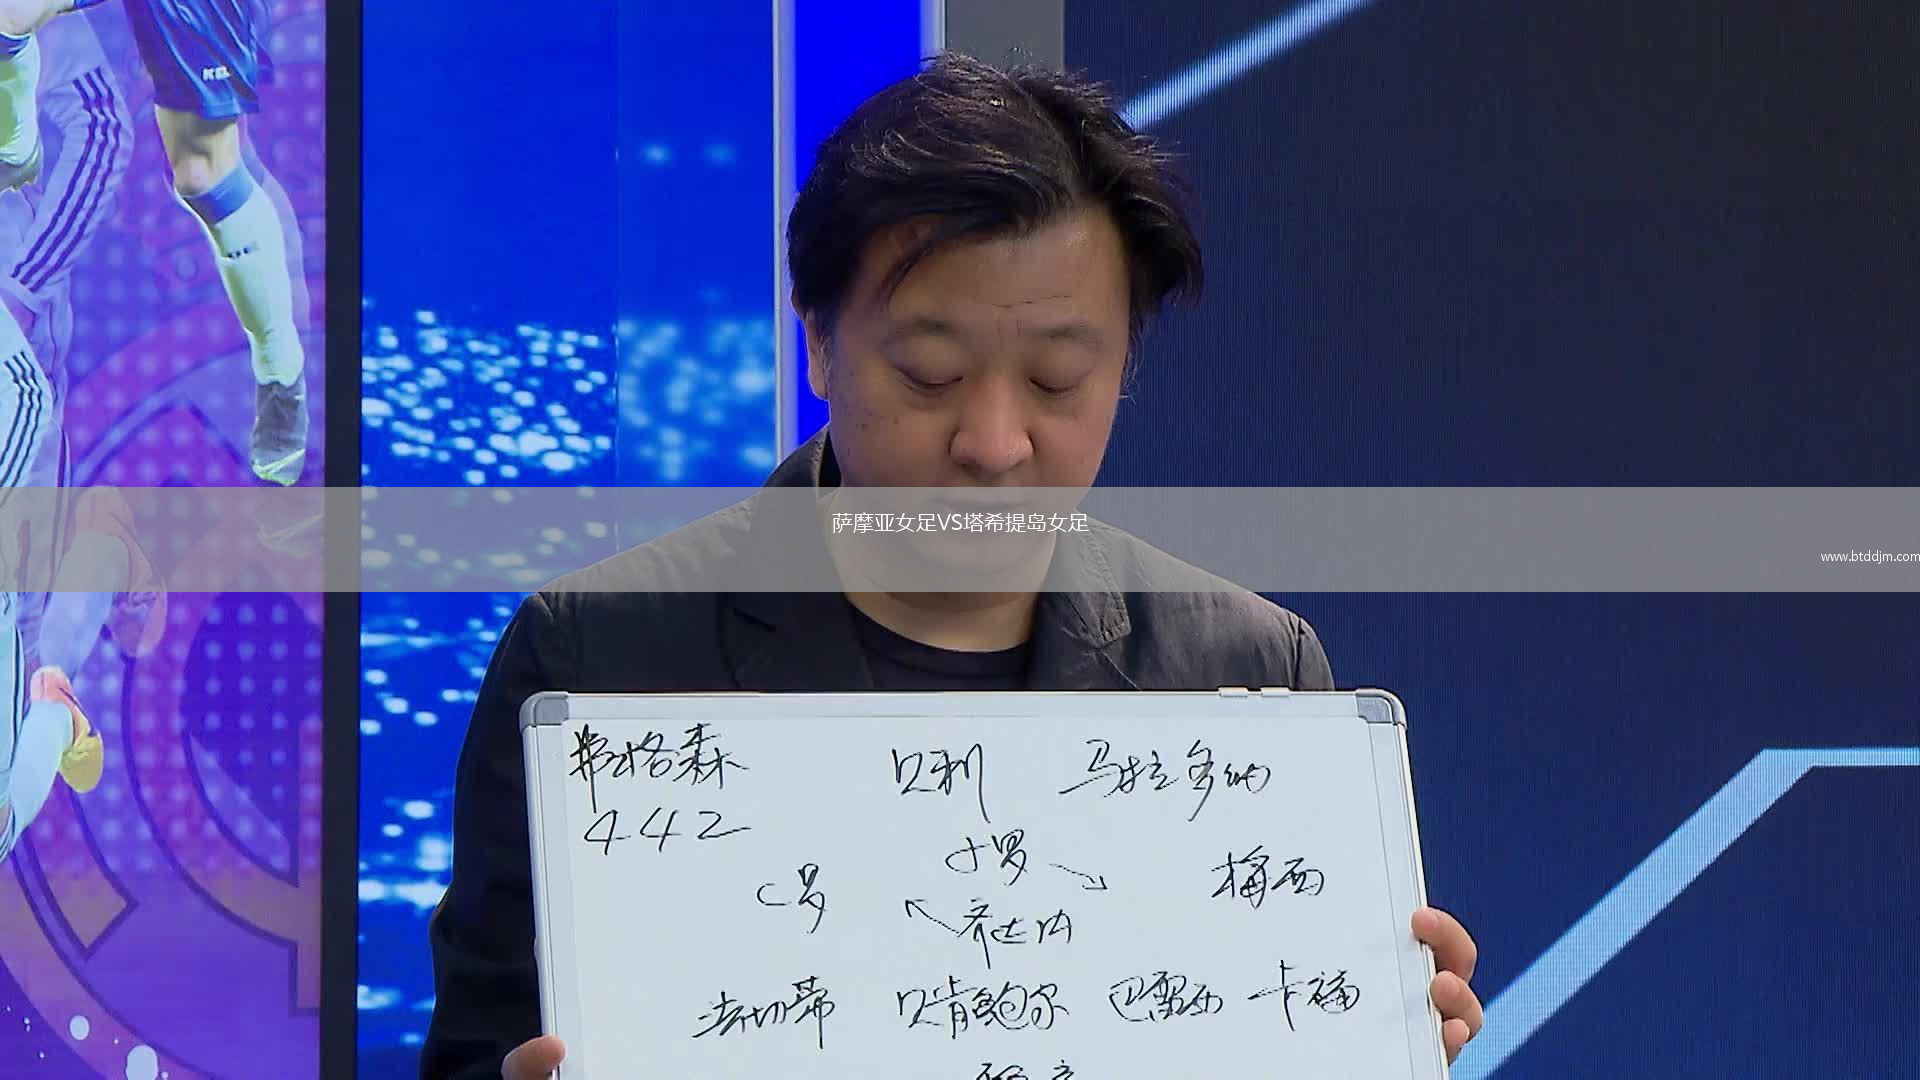 KEL
萨摩亚女足VS塔希提岛女足
www.btddjm.com
弗格森 贝利 马拉多纳
442
小罗
C罗 梅西
齐达内
法切蒂 贝肯鲍尔 巴雷西 卡福